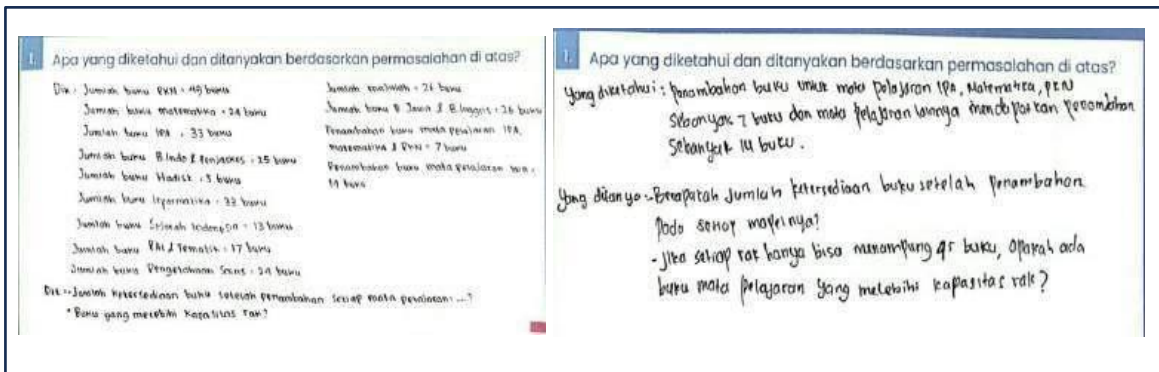 1. Apa yang diketahui dan ditanyakan berdasarkan permasalahan di atas?
Dik : Jumlah buku PKN = 49 buku
Jumlah buku matematika = 24 buku
Jumlah buku IPA = 33 buku
Jumlah buku B.Indo & Penjaskes = 25 buku
Jumlah buku Hadist = 5 buku
Jumlah buku Informatika = 33 buku
Jumlah buku Sejarah Indonesia = 13 buku
Jumlah buku PAI & Tematik = 17 buku
Jumlah buku Pengetahuan Sains = 24 buku
Jumlah = 26 buku
Jumlah buku B. Jawa & B.Inggris = 26 buku
Penambahan buku mata pelajaran IPA,
matematika & PKN = 7 buku
Penambahan buku mata pelajaran :
14 buku
Dit : - Jumlah ketersediaan buku setelah penambahan setiap mata pelajaran ... ?
* Buku yang melebihi kapasitas rak?
1. Apa yang diketahui dan ditanyakan berdasarkan permasalahan di atas?
Yang diketahui : Penambahan buku untuk mata pelajaran IPA, Matematika, PKN
Sebanyak 7 buku dan mata pelajaran lainnya mendapatkan penambahan
Sebanyak 14 buku.
Yang ditanya : - Berapakah Jumlah ketersediaan buku setelah Penambahan
Pada setiap mapelnya?
- Jika setiap rak hanya bisa menampung 45 buku, apakah ada
buku mata pelajaran yang melebihi kapasitas rak?